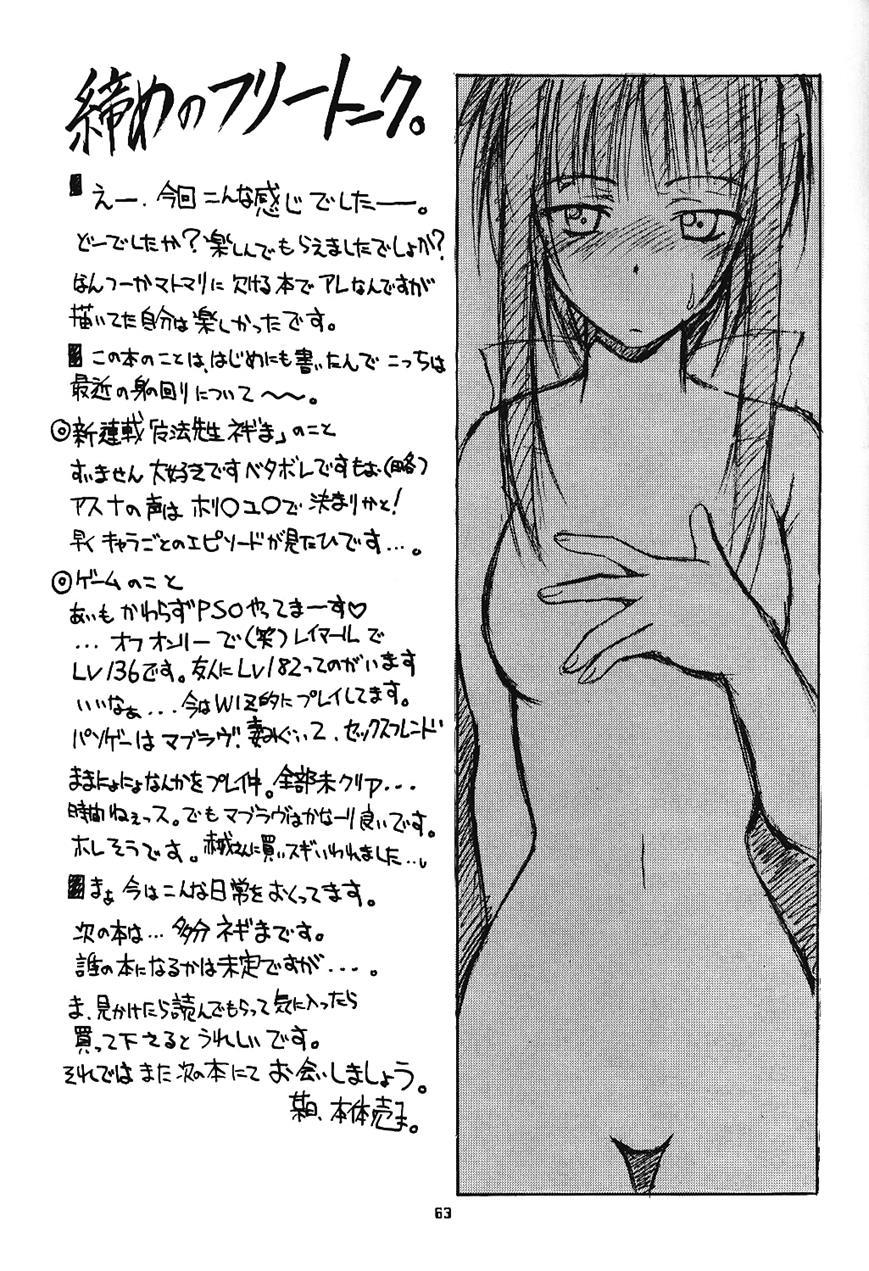 締めのフリートーク。
えー、今回こんな感じでしたー。
どーでしたか?楽しんでもらえましたでしょか?
なんつーかマトマリに欠ける本でアレなんですが
描いてた自分は楽しかったです。
この本のことは、はじめにも書いたんでこっちは
最近の身の回りについて〜〜。
◎新連載「魔法先生ネギま」のこと
すいません大好きですベタボレですもぉ(略)
アスナの声はホリ○ユ○で決まりかと!
早くキャラごとのエピソードが見たひです…。
◎ゲームのこと
あいもかわらずPSOやってまーす♡
…オフオンリーで(笑)レイマールで
LV136です。友人にLV182ってのがいます
いいなぁ...今はWIZ的にプレイしてます。
パソゲーはマブラヴ、妻ねぐいて、セックスフレンド
ままにょにょなんかをプレイ中。全部未クリア...
時間ねぇっス。でもマブラヴはかなーり良いです。
ホレそうです。さんに買いスギいわれました…。
まぁ今はこんな日常をおくってます。
次の本は…多分ネギまです。
誰の本になるかは未定ですが...。
ま、見かけたら読んでもらって気に入ったら
買って下さるとうれしいです。
それではまた次の本にてお会いしましょう。
本体売
63